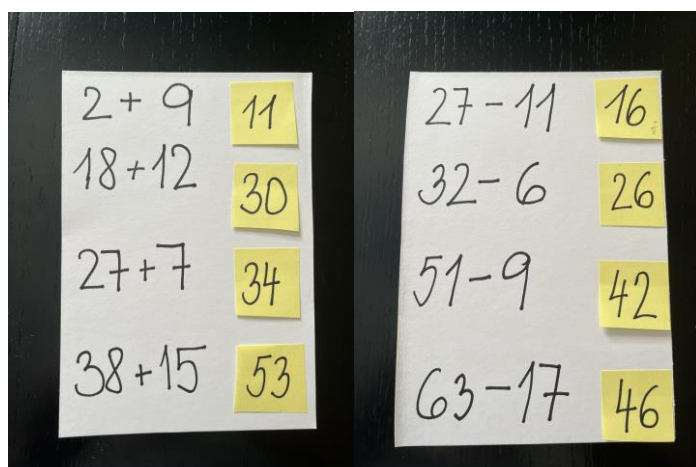 2 + 9 11
18 + 12 30
27 + 7 34
38 + 15 53
27 - 11 16
32 - 6 26
51 - 9 42
63 - 17 46